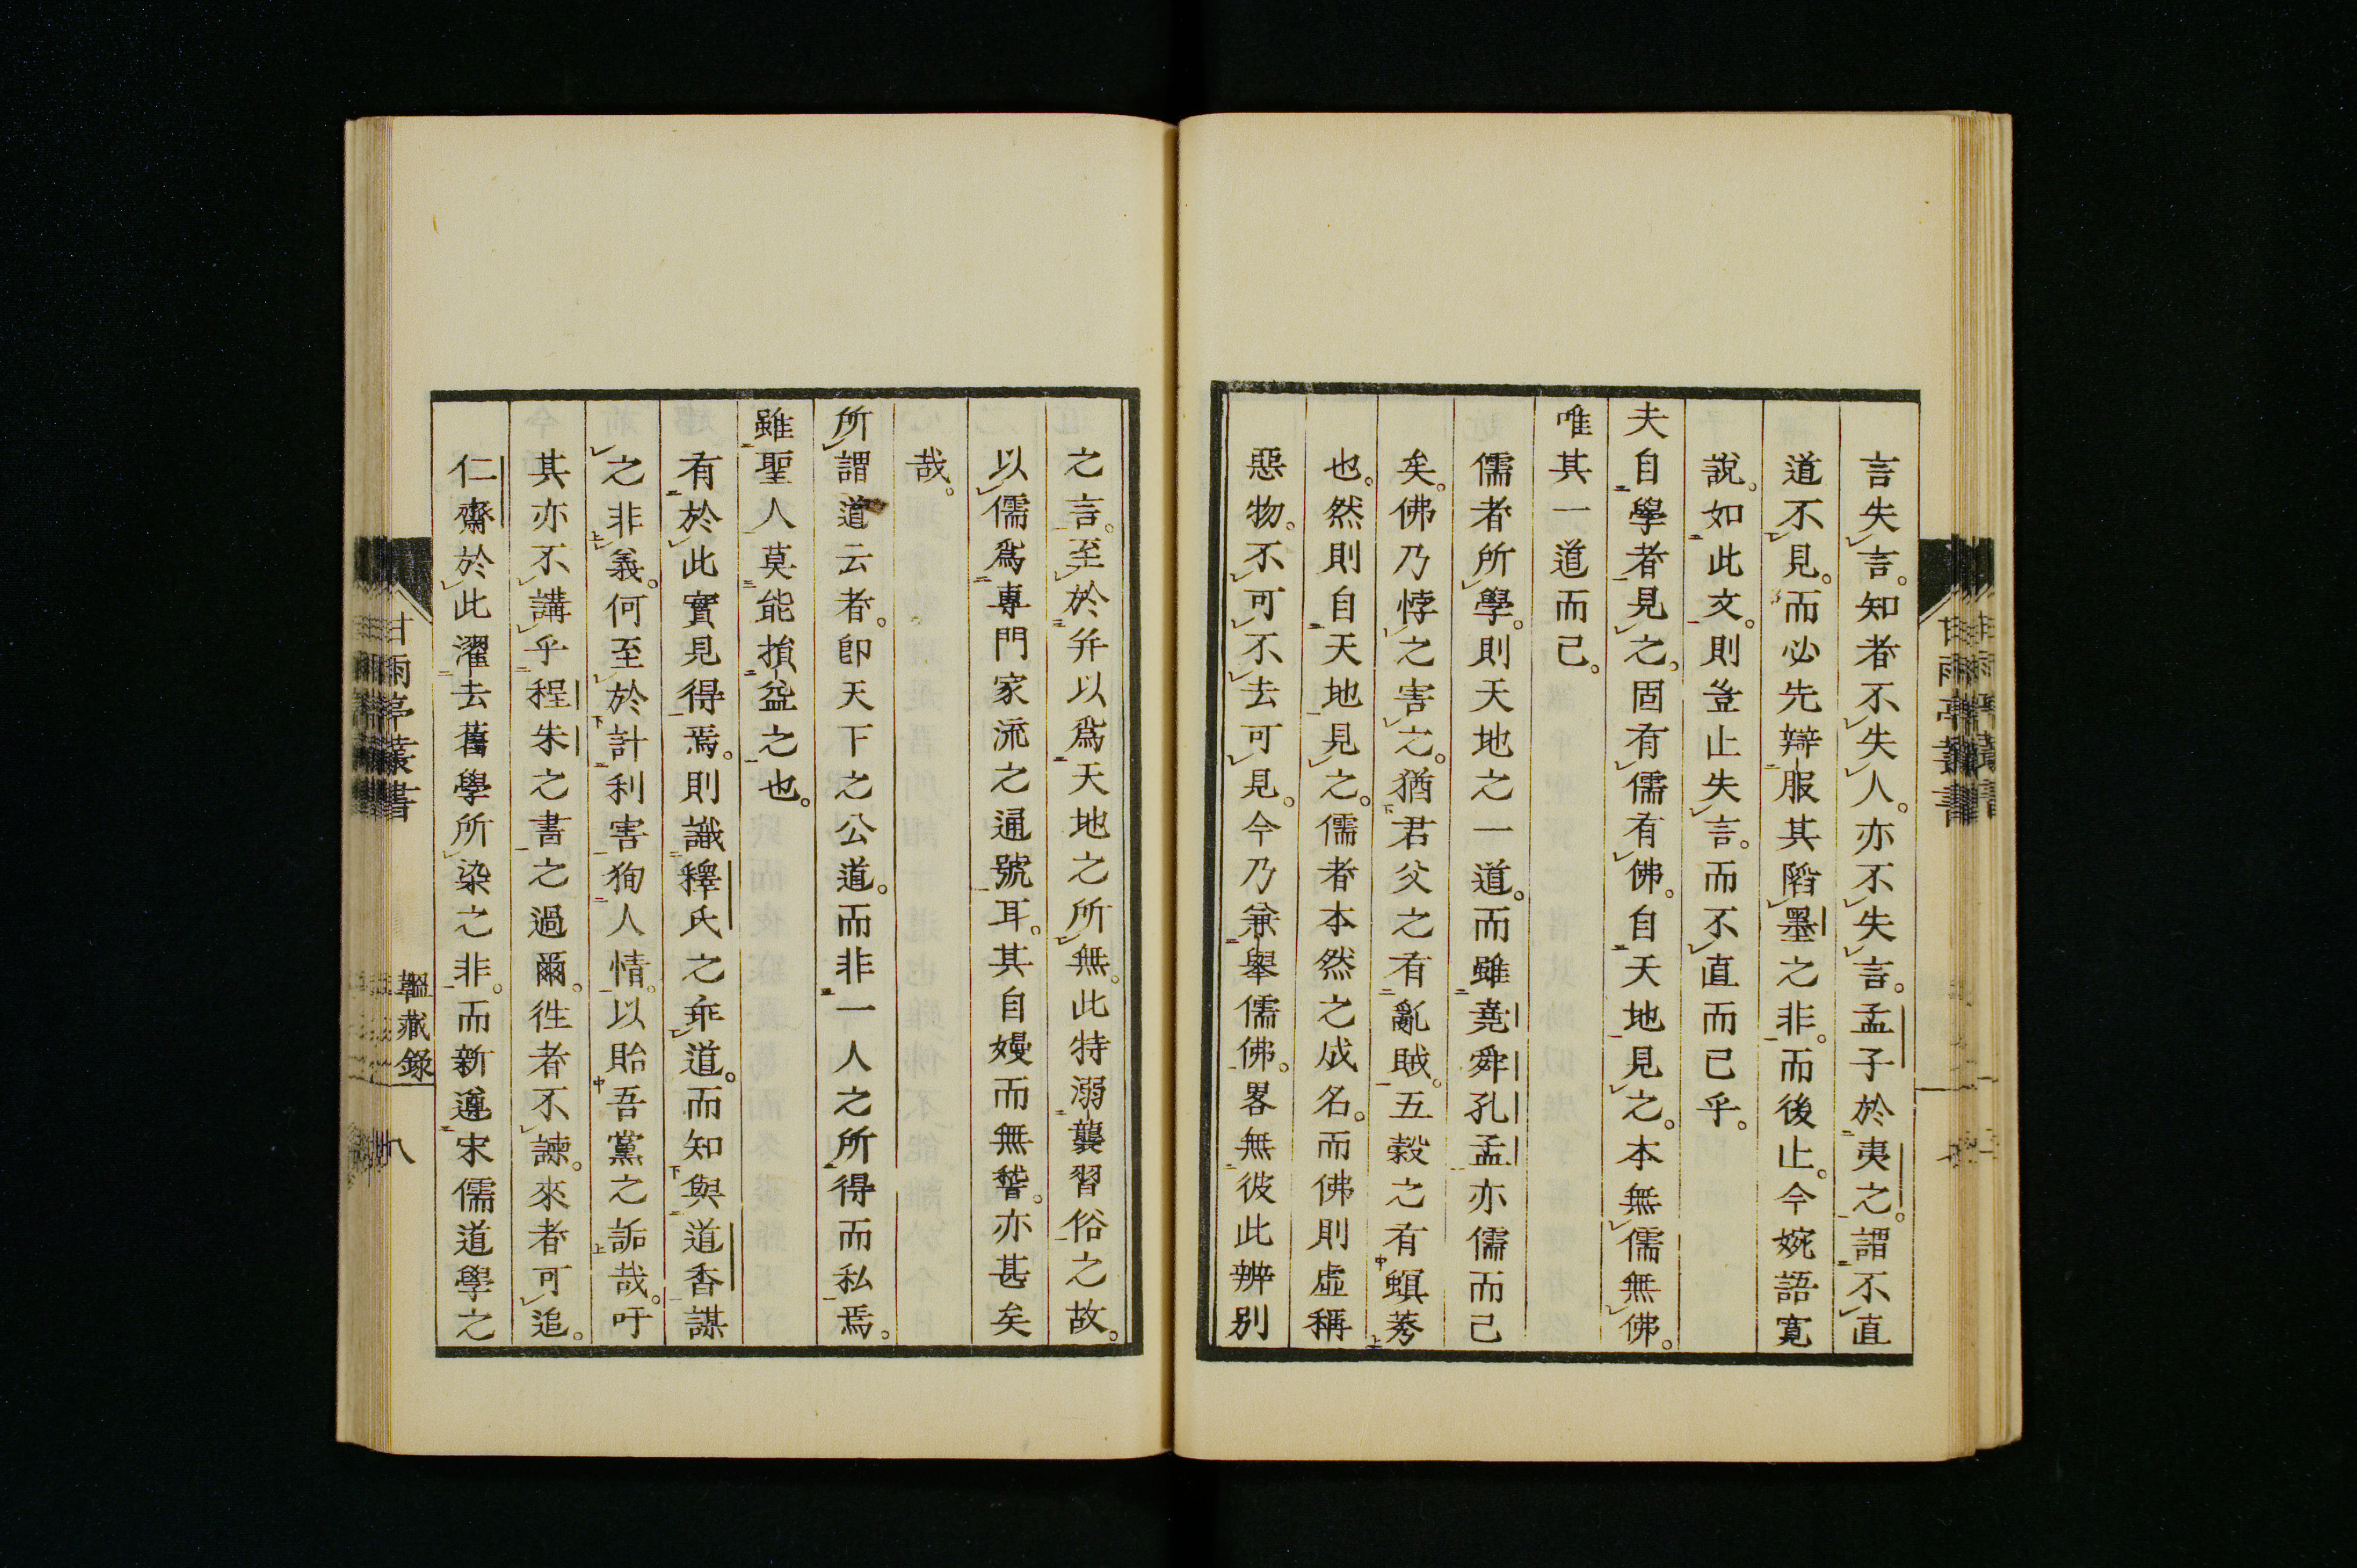 言失言。知者不失人。亦不失言。孟子於夷之。謂不直
道不見。而必先辯服其陷墨之非。而後止。今婉語寬
說。如此文。則豈止失言。而不直而已乎。
夫自學者見之。固有儒有佛。自天地見之。本無儒無佛。
唯其一道而已。
儒者所學。則天地之一道。而雖堯舜孔孟亦儒而已
矣。佛乃悖之害之。猶君父之有亂賊。五穀之有螟莠
也。然則自天地見之。儒者本然之成名。而佛則虛稱
惡物。不可不去可見。今乃兼舉儒佛。畧無彼此辨別
之言。至於弁以爲天地之所無。此特溺襲習俗之故。
以儒爲專門家流之通號耳。其自嫚而無稽。亦甚矣
哉。
所謂道云者。卽天下之公道。而非一人之所得而私焉。
雖聖人莫能損益之也。
有於此實見得焉。則識釋氏之乖道。而知與道香謀
之非義。何至於計利害狥人情。以貽吾黨之詬哉。吁
其亦不講乎程朱之書之過爾。徃者不諫。來者可追。
仁齋於此濯去舊學所染之非。而新遵宋儒道學之
甘雨亭叢書
韞藏錄
八
甘雨亭叢書